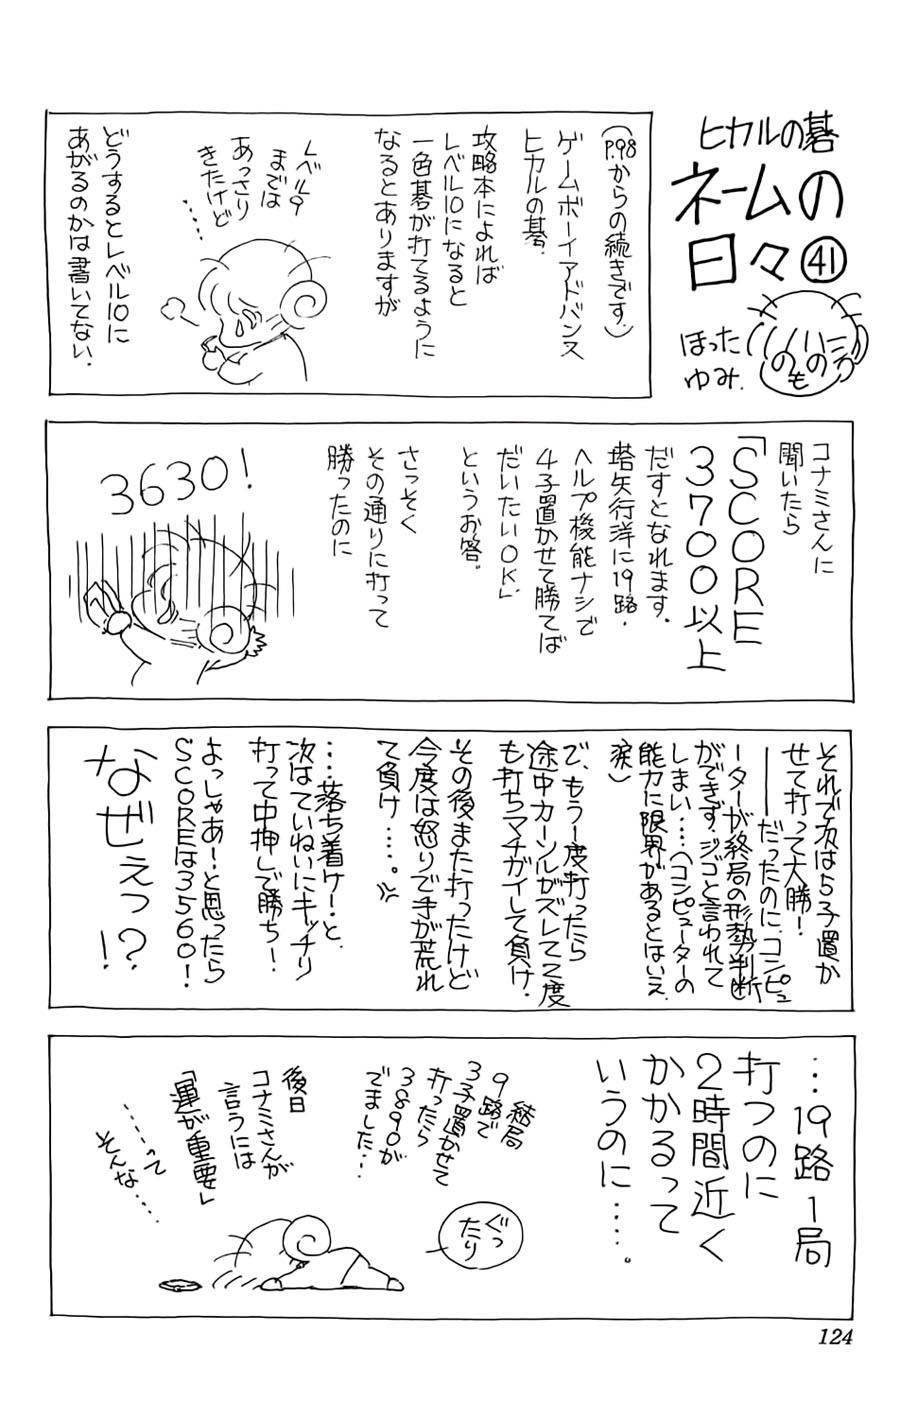 ヒカルの碁
ネームの
日々㊶
ほった
ゆみ
(P.98からの続きです。)
ゲームボーイアドバンス
ヒカルの碁。
攻略本によれば
レベル10になると
一色碁が打てるように
なるとありますが
レベル9
までは
あっさり
きたけど
……
どうするとレベル10に
あがるのかは書いてない。
コナミさんに
聞いたら
「SCORE
3700以上
だすとなれます。
塔矢行洋に19路・
ヘルプ機能ナシで
4子置かせて勝てば
だいたいOK」
というお答。
さっそく
その通りに打って
勝ったのに
3630!
それで次は5子置か
せて打って大勝!
——だったのに、コンピュ
ーターが終局の形勢判断
ができず、ジゴと言われて
しまい……(コンピューターの
能力に限界があるとはいえ
涙)
で、もう1度打ったら
途中カーソルがズレて2度
も打ちマチガイして負け。
その後また打ったけど
今度は怒りで手が荒れ
て負け……。
……落ち着け!と、
次はていねいにキッチリ
打って中押しで勝ち!
よっしゃあ!と思ったら
SCOREは3560!
なぜぇっ
!?
…19路1局
打つのに
2時間近く
かかるって
いうのに……。
結局
9路で
3子置かせて
打ったら
3890が
でました…
ぐっ
たり
後日
コナミさんが
言うには
「運が重要」
……って
そんな……
124